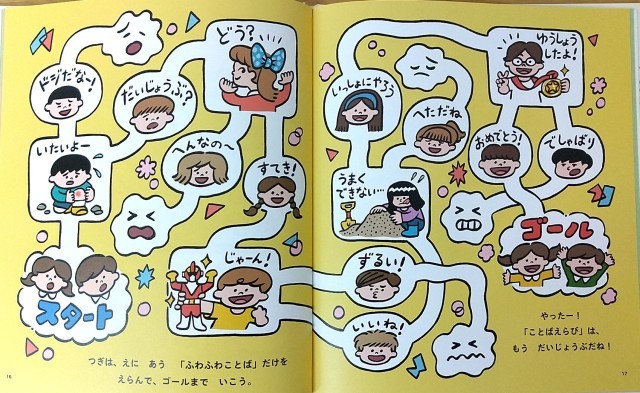 どう?
ドジだなー!
だいじょうぶ?
いたいよー
へんなの〜
すてき!
じゃーん!
スタート
つぎは、えに あう 「ふわふわことば」だけを
えらんで、ゴールまで いこう。
16
ゆうしょう
したよ!
いっしょにやろう
へただね
おめでとう!
でしゃばり
うまく
できない…
ゴール
ずるい!
いいね!
やったー!
「ことばえらび」は、
もう だいじょうぶだね!
17